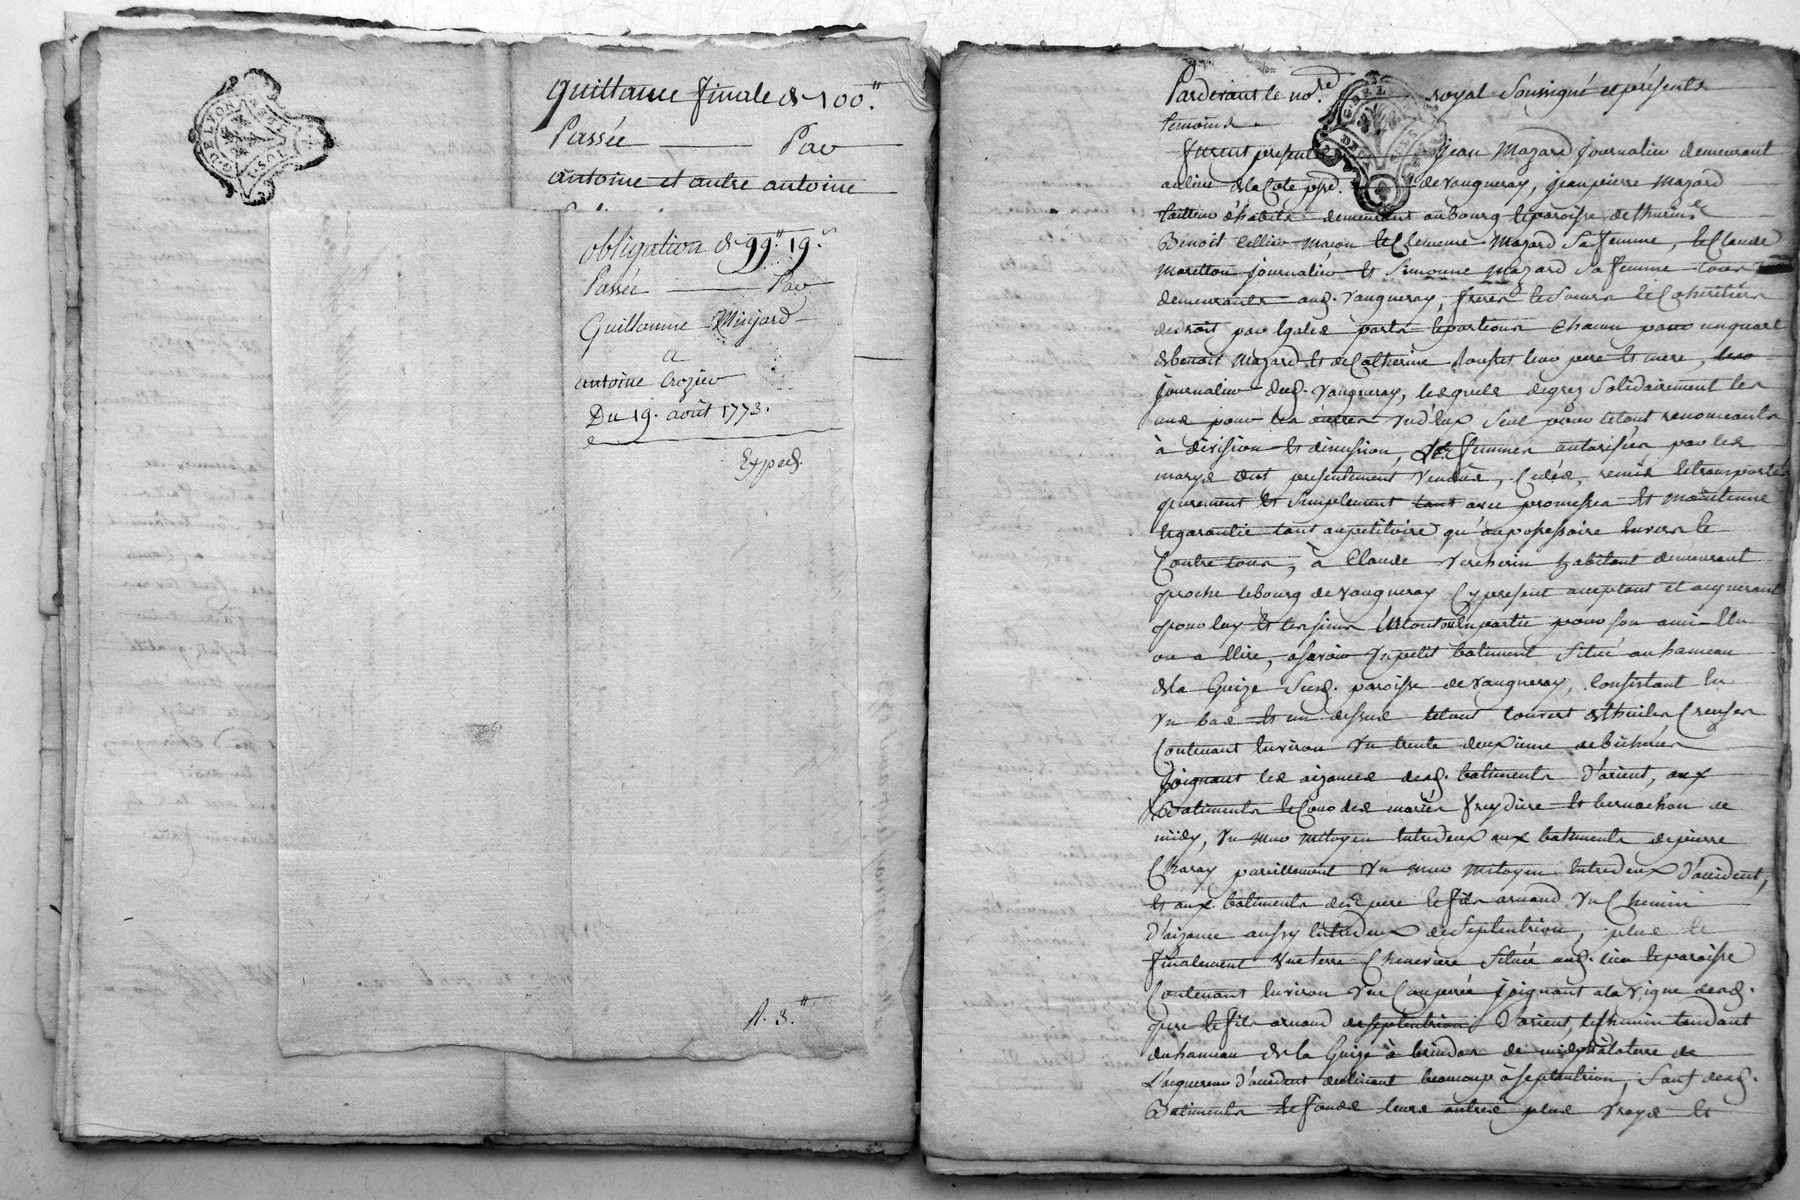 quittance finale de 100."
Passée ——— Par
antoine et autre antoine
obligation de 99." 19.s
Passée ——— Par
Guillaume Minjard
a
antoine Crozier
Du 19. août 1773.
Exped.
R. 3."
DE LYON
Pardevant le no.re royal Soussigné et présents
temoins
furent presents Jean Mazard journalier demeurant
au lieu de la Cote psse. de Vaugneray, jeanpierre Mazard
tailleur d'habits demeurant au bourg & paroisse de thurins
Benoit Cellier maçon & Clemence Mazard Sa femme, & Claude
Moretton journalier & Simonne Mazard Sa femme tous
demeurants aud. Vaugneray, freres & soeurs & Coheritiers
de droit par Egales parts & portions Chacun pour un quart
de benoit Mazard & de Catherine leur pere & mere,
journalier dud. Vaugneray, lesquels de gré Solidairement les
uns pour les autres un d'eux Seul pour le tout renonceants
à division & discution, les femmes autorisées par les
marys ont presentement Vendu, Cedé, remis & transporté
purement & Simplement avec promesses de maintenue
& garantie tant au petitoire qu'au possessoire Envers &
Contre tous, à Claude Vercherin habitant demeurant
proche le bourg de Vaugneray Cy present acceptant et acquerant
pour luy & les siens En tout ou En partie pour son ami Elu
ou a Elire, asavoir Un petit batiment Situé au hameau
de la Guize Susd. paroisse de Vaugneray, Consistant En
Un bas & un dessus le tout couvert de thuiles Creuses
Contenant Environ Un trente deuxieme de bicherée
joignant les aizances desd. batiments d'orient, aux
Batiments & Cour des mariés freydiere & bernachon de
midy, Un mur mitoyen Entredeux aux batiments de pierre
Charay pareillement Un mur mitoyen Entredeux d'occident,
& aux batiments des pere & fils arnaud Un Chemin
d'aizance aussy Entredeux de Septentrion, plus &
finalement Une terre Cheneviere Située aud. lieu & paroisse
Contenant Environ Une Couperée joignant a la Vigne desd.
pere & fils arnaud d'orient, le Chemin tendant
du hameau de la Guize à brindas de midy, à la terre de
L'acquereur d'occident declinant beaucoup à Septentrion, Sauf desd.
Batiments & fonds leurs autres plus Vrays &